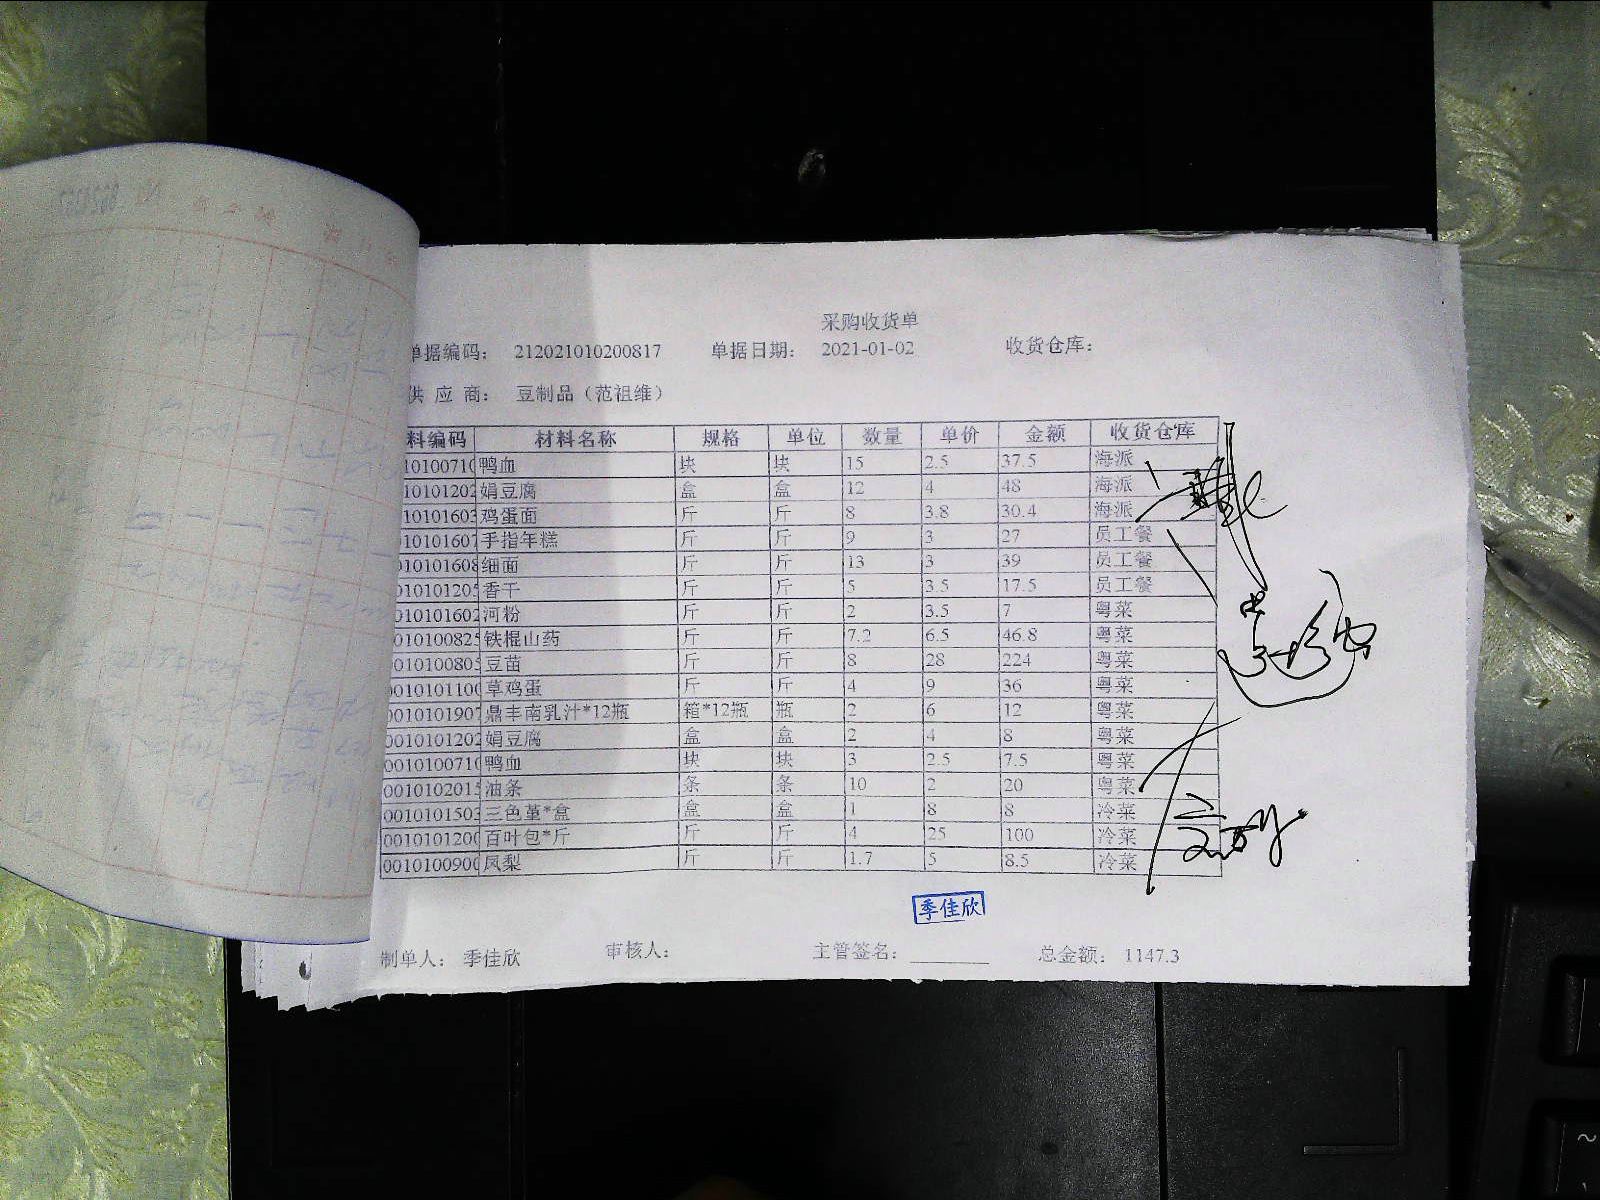 采购收货单
单据编码： 212021010200817 单据日期： 2021-01-02 收货仓库：
供 应 商： 豆制品（范祖维）
料编码 材料名称 规格 单位 数量 单价 金额 收货仓库
10100710 鸭血 块 块 15 2.5 37.5 海派
10101202 娟豆腐 盒 盒 12 4 48 海派
10101603 鸡蛋面 斤 斤 8 3.8 30.4 海派
10101607 手指年糕 斤 斤 9 3 27 员工餐
10101608 细面 斤 斤 13 3 39 员工餐
010101205 香干 斤 斤 5 3.5 17.5 员工餐
010101602 河粉 斤 斤 2 3.5 7 粤菜
010100825 铁棍山药 斤 斤 7.2 6.5 46.8 粤菜
010100805 豆苗 斤 斤 8 28 224 粤菜
0010101100 草鸡蛋 斤 斤 4 9 36 粤菜
0010101907 鼎丰南乳汁*12瓶 箱*12瓶 瓶 2 6 12 粤菜
0010101202 娟豆腐 盒 盒 2 4 8 粤菜
0010100710 鸭血 块 块 3 2.5 7.5 粤菜
0010102015 油条 条 条 10 2 20 粤菜
0010101503 三色堇*盒 盒 盒 1 8 8 冷菜
0010101200 百叶包*斤 斤 斤 4 25 100 冷菜
0010100900 凤梨 斤 斤 1.7 5 8.5 冷菜
季佳欣
制单人： 季佳欣 审核人： 主管签名： 总金额： 1147.3